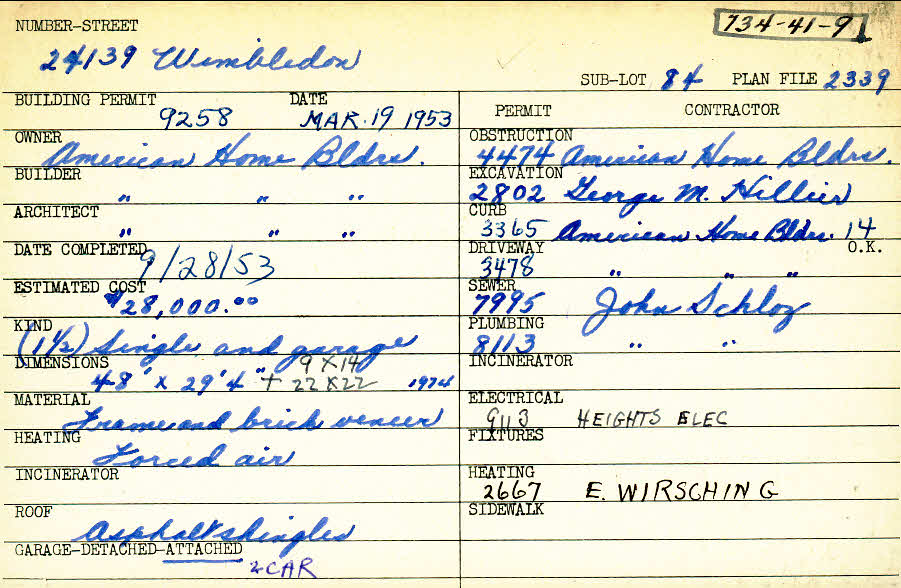 NUMBER-STREET
734-41-9
24139 Wimbledon
SUB-LOT 84 PLAN FILE 2339
BUILDING PERMIT DATE
9258 MAR. 19 1953
OWNER
American Home Bldrs.
BUILDER
" " "
ARCHITECT
" " "
DATE COMPLETED
9/28/53
ESTIMATED COST
$28,000.00
KIND
(1½) Single and garage
DIMENSIONS 9 X 14
48' x 29'4" + 22 X 22 1974
MATERIAL
Frame and brick veneer
HEATING
Forced air
INCINERATOR
ROOF
Asphalt shingles
GARAGE-DETACHED-ATTACHED
2 CAR
PERMIT CONTRACTOR
OBSTRUCTION
4474 American Home Bldrs.
EXCAVATION
2802 George M. Hillier
CURB
3365 American Home Bldrs. 14
DRIVEWAY O.K.
3478 " " "
SEWER
7995 John Schloz
PLUMBING
8113 " "
INCINERATOR
ELECTRICAL
9113 HEIGHTS ELEC
FIXTURES
HEATING
2667 E. WIRSCHING
SIDEWALK